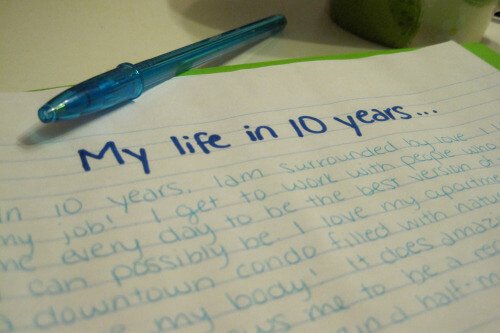 My life in 10 years...
In 10 years, I am surrounded by love. I
my job! I get to work with people who
me every day to be the best version of
I can possibly be. I love my apartment
downtown condo filled with natu
my body! It does amaz
me to be a
half-m